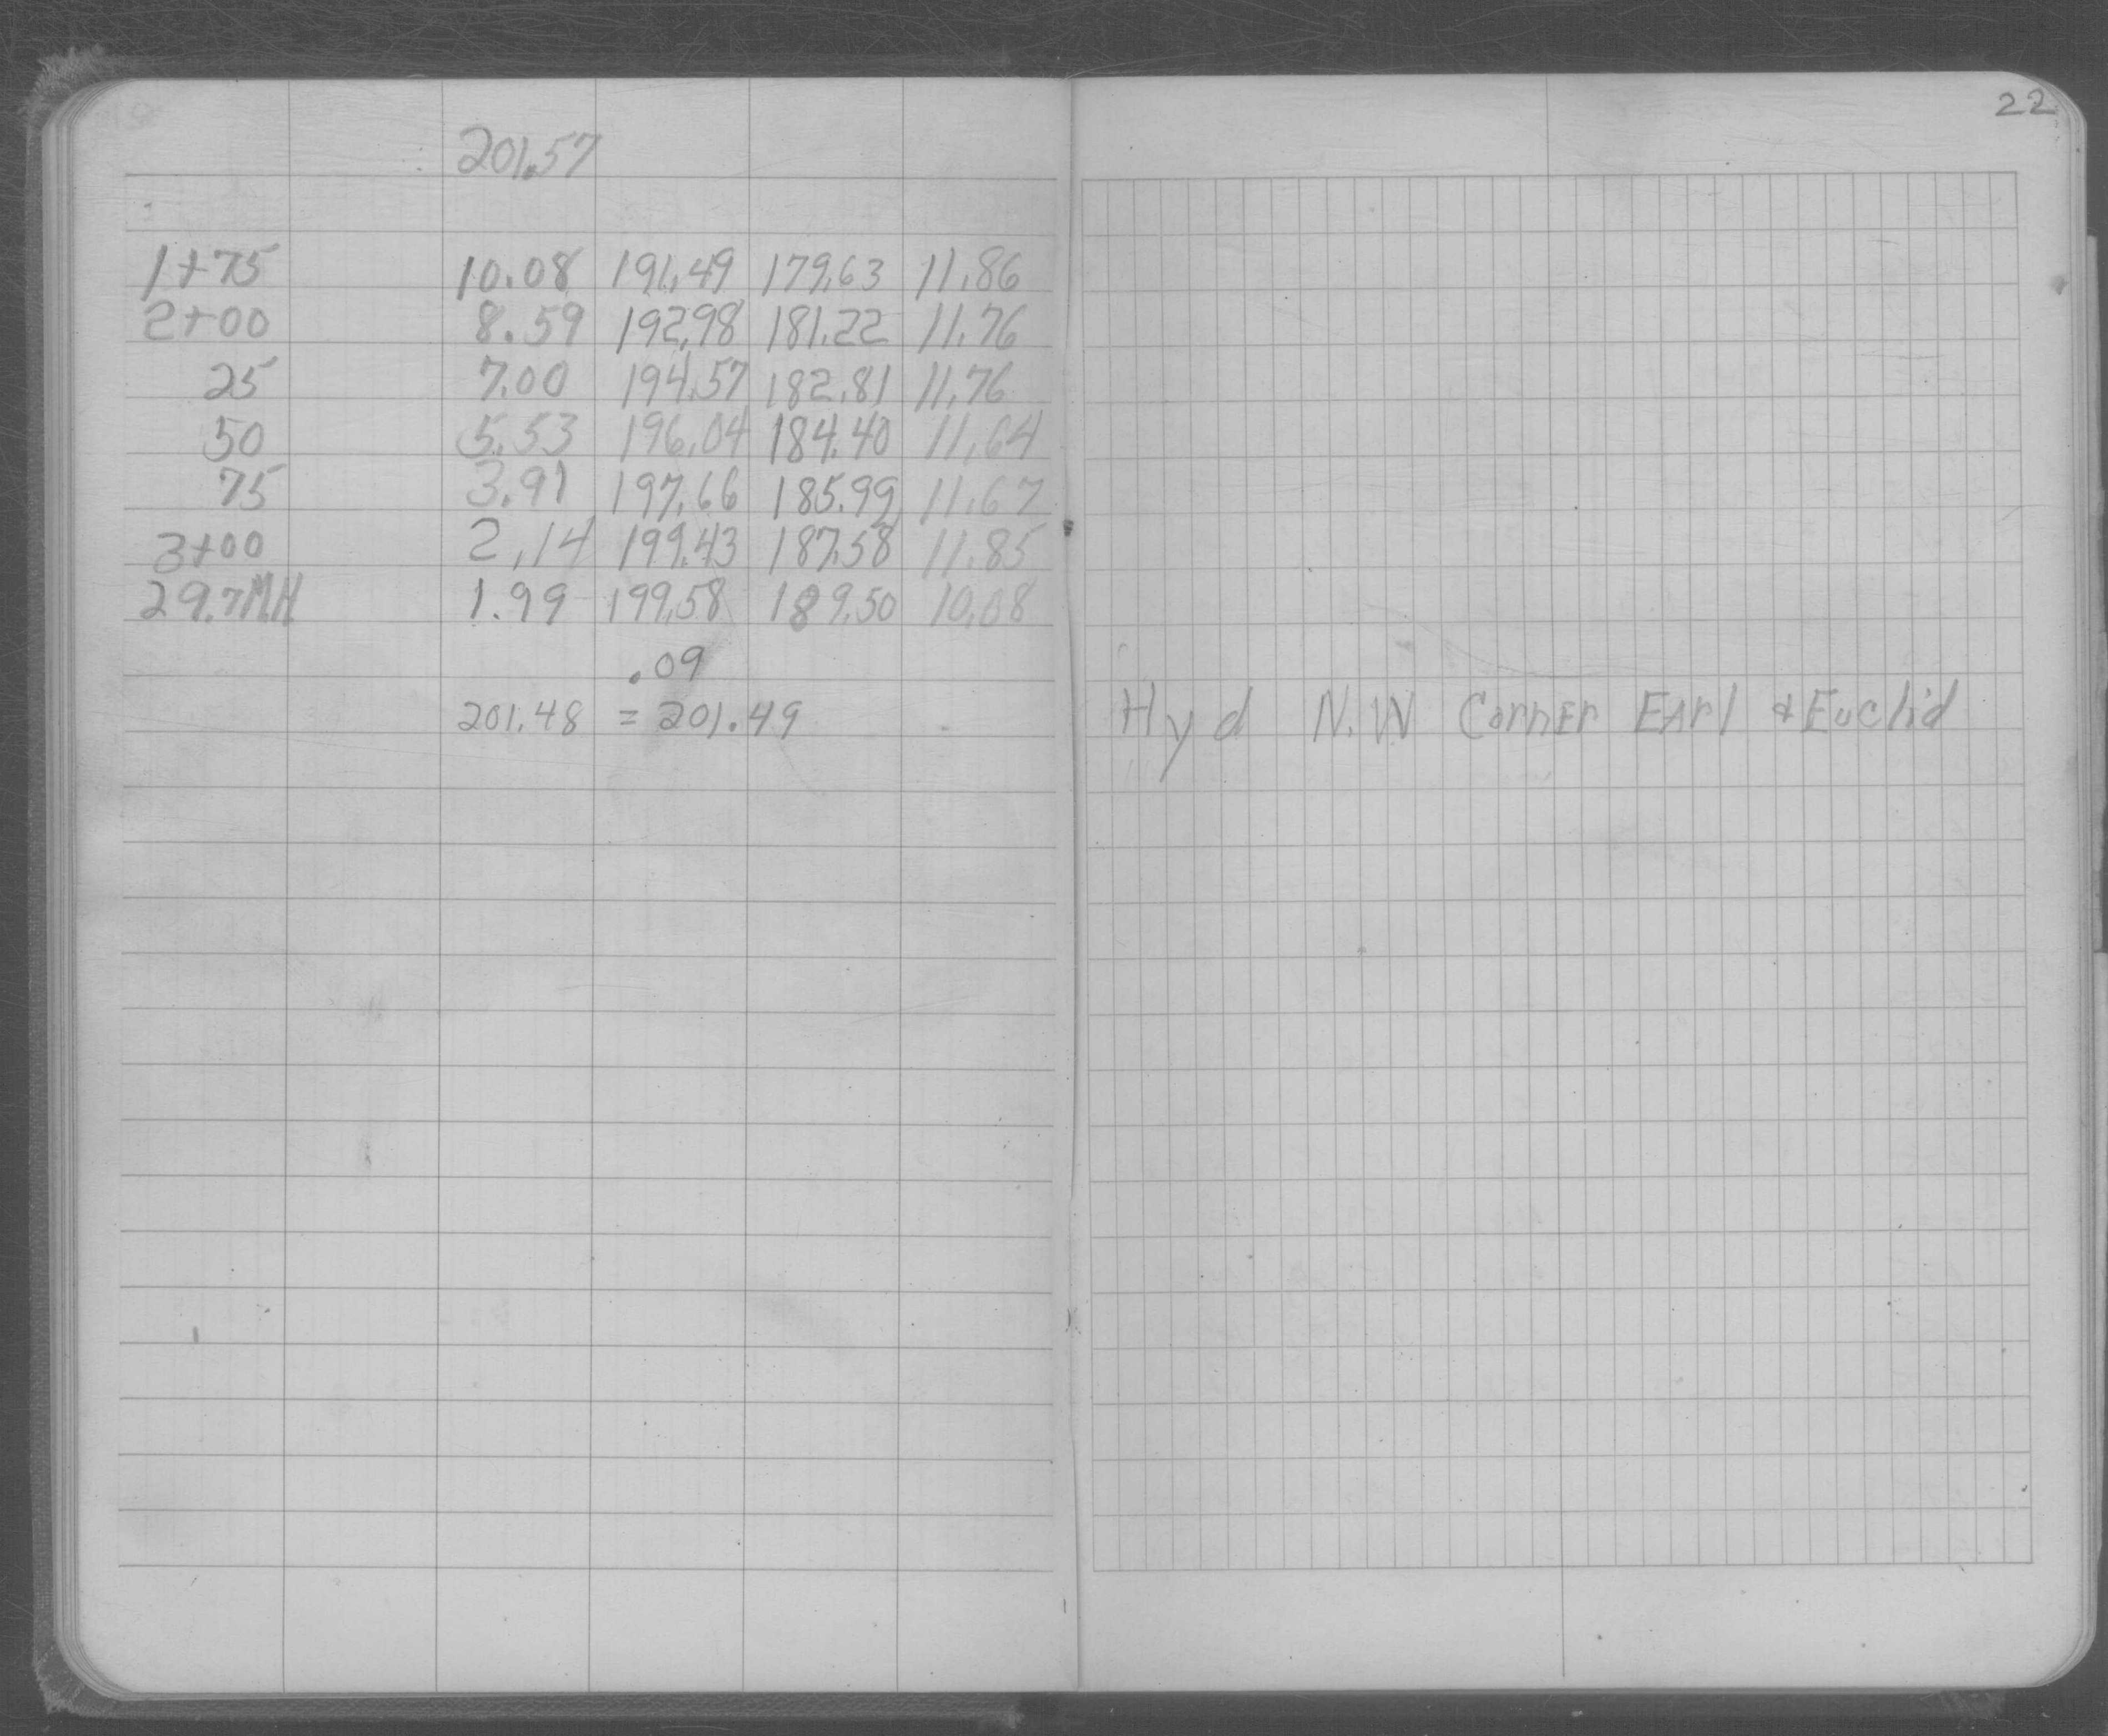 22
201.57
1+75 10.08 191.49 179.63 11.86
2+00 8.59 192.98 181.22 11.76
25 7.00 194.57 182.81 11.76
50 5.53 196.04 184.40 11.64
75 3.91 197.66 185.99 11.67
3+00 2.14 199.43 187.58 11.85
29.7 M.H. 1.99 199.58 189.50 10.08
.09
201.48 = 201.49 Hyd N.W Corner Earl & Euclid